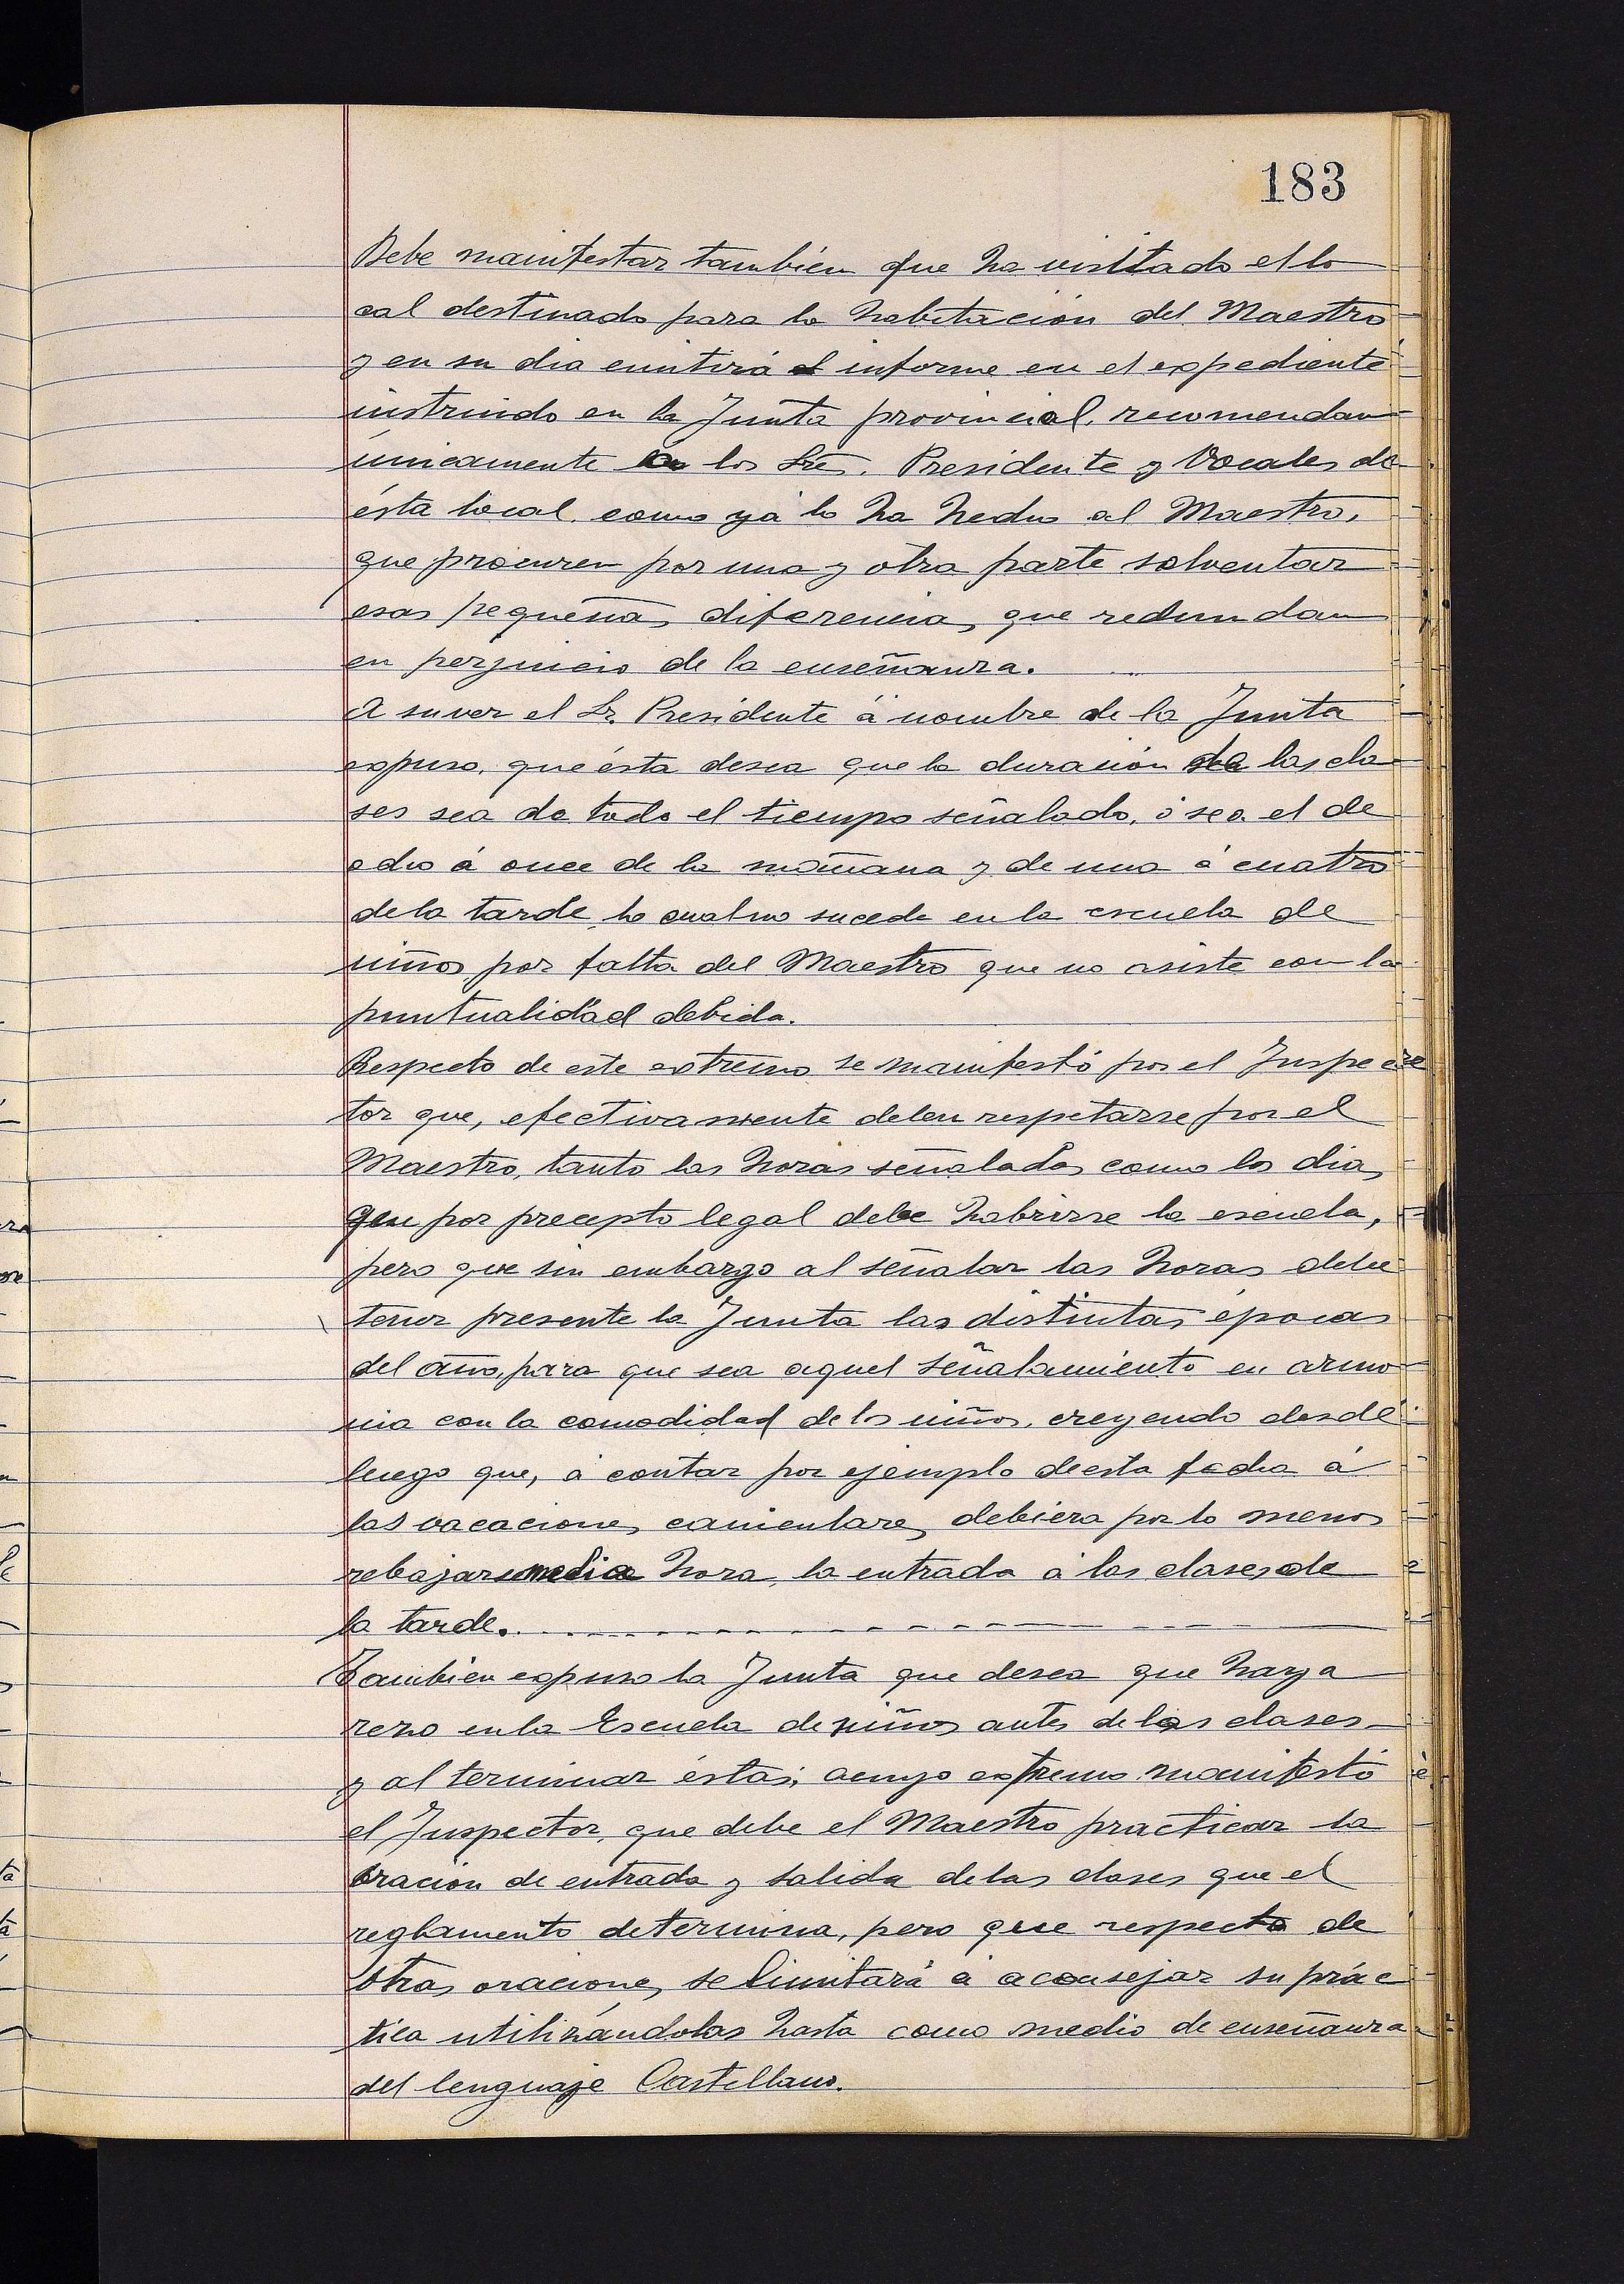 183
Debe manifestar también que ha visitado el lo
cal destinado para la habitación del Maestro
y en su dia emitirá el informe en el expediente
instruido en la Junta provincial, recomendan
únicamente a los Sres. Presidente y Vocales de
ésta local, como ya lo ha hecho al Maestro,
que procuren por una y otra parte solventar
esas pequeñas diferencias que redundan
en perjuicio de la enseñanza.
A su vez el Sr. Presidente á nombre de la Junta
expuso, que ésta desea que la duración de las cla
ses sea de todo el tiempo señalado, ó sea el de
ocho á once de la mañana y de una á cuatro
de la tarde, lo cual no sucede en la escuela de
niños por falta del Maestro que no asiste con la
puntualidad debida.
Respecto de este extremo se manifestó por el Inspec
tor que, efectivamente deben respetarse por el
Maestro, tanto las horas señaladas como los dias
que por precepto legal debe habrirse la escuela,
pero que sin embargo al señalar las horas debe
tener presente la Junta las distintas épocas
del año, para que sea aquel señalamiento en armo
nia con la comodidad de los niños, creyendo desde
luego que, á contar por ejemplo de esta fecha á
las vacaciones caniculares, debiera por lo menos
rebajarse media hora, la entrada á las clases de
la tarde.
Tambien expuso la Junta que desea que haya
rezo en la Escuela de niños antes de las clases
y al terminar éstas; acuyo extremo manifestó
el Inspector, que debe el Maestro practicar la
oración de entrada y salida de las clases que el
reglamento determina, pero que respecto de
otras oraciones, se limitará á aconsejar su prác
tica utilizándolas hasta como medio de enseñanza
del lenguaje Castellano.